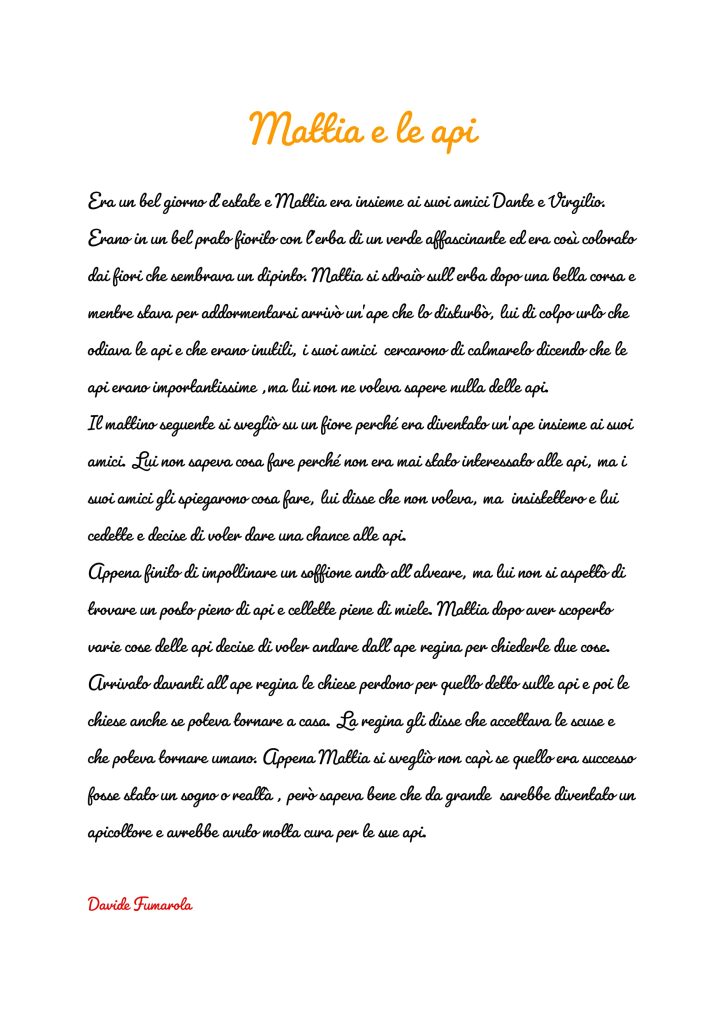 Mattia e le api
Era un bel giorno d'estate e Mattia era insieme ai suoi amici Dante e Virgilio.
Erano in un bel prato fiorito con l'erba di un verde affascinante ed era così colorato
dai fiori che sembrava un dipinto. Mattia si sdraiò sull'erba dopo una bella corsa e
mentre stava per addormentarsi arrivò un'ape che lo disturbò, lui di colpo urlò che
odiava le api e che erano inutili, i suoi amici cercarono di calmarelo dicendo che le
api erano importantissime ,ma lui non ne voleva sapere nulla delle api.
Il mattino seguente si svegliò su un fiore perché era diventato un'ape insieme ai suoi
amici. Lui non sapeva cosa fare perché non era mai stato interessato alle api, ma i
suoi amici gli spiegarono cosa fare, lui disse che non voleva, ma insistettero e lui
cedette e decise di voler dare una chance alle api.
Appena finito di impollinare un soffione andò all'alveare, ma lui non si aspettò di
trovare un posto pieno di api e cellette piene di miele. Mattia dopo aver scoperto
varie cose delle api decise di voler andare dall'ape regina per chiederle due cose.
Arrivato davanti all'ape regina le chiese perdono per quello detto sulle api e poi le
chiese anche se poteva tornare a casa. La regina gli disse che accettava le scuse e
che poteva tornare umano. Appena Mattia si svegliò non capì se quello era successo
fosse stato un sogno o realtà , però sapeva bene che da grande sarebbe diventato un
apicoltore e avrebbe avuto molta cura per le sue api.
Davide Fumarola